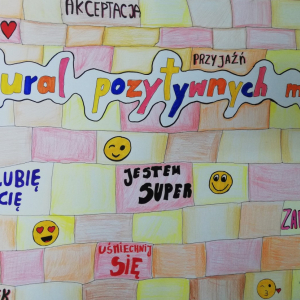 AKCEPTACJA
PRZYJAŹŃ
ural pozytywnych m
LUBIĘ
CIĘ
JESTEM
SUPER
UŚMIECHNIJ
SIĘ